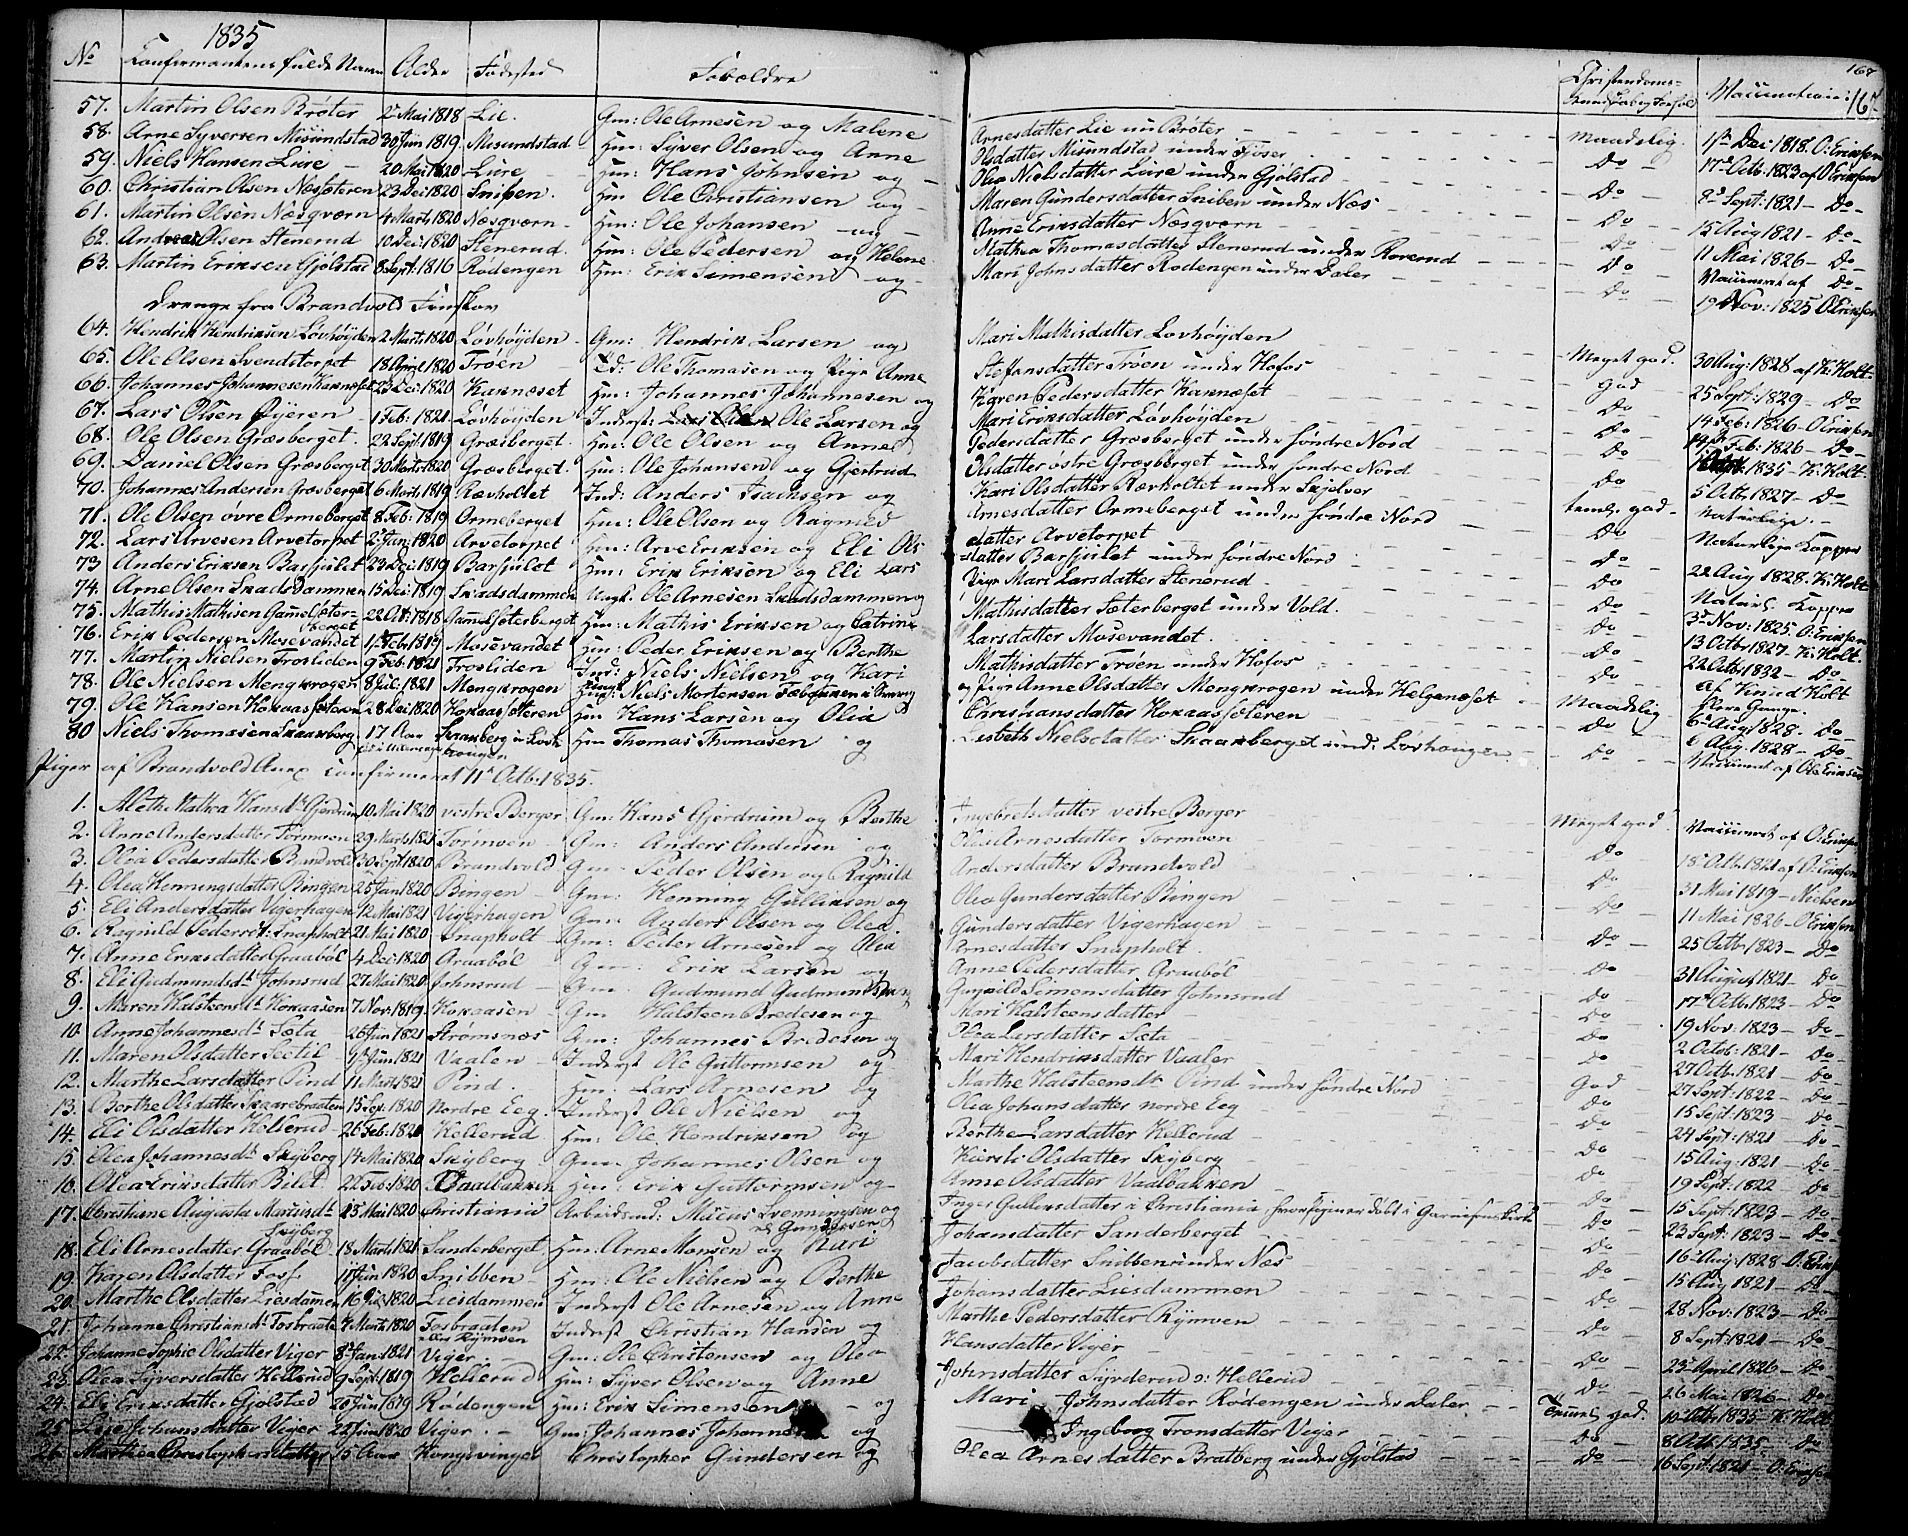 1835
No Confirmantens fulde Navn Alder Fødested Forældre
57. Martin Olsen Brøter 2 Mai 1818 Lie. Gm: Ole Arnesen og Malene
58. Arne Syversen Misundstad 30 Jun 1819 Misundstad Hm: Syver Olsen og Anne
59. Niels Hansen Lure 20 Mai 1820 Lure Hm: Hans Johnsen og
60. Christian Olsen Næssæteren 23 Dec 1820 Sniben. Hm Ole Christiansen og
61. Martin Olsen Næsqværn 4 Marts 1820 Næsqværn Hm: Ole Johansen og
62. Andreas Olsen Stenerud 10 Dec: 1820 Stenerud Hm: Ole Pedersen og Helene
63. Martin Eriksen Gjølstad 8 Sept: 1816 Rødengen Hm: Erik Simensen og
Drenge fra Brandvold Finskov
64. Hendrik Hendriksen Løvhøyden 2 Mart: 1820 Løvhøyden Gm: Hendrik Larsen og
65. Ole Olsen Svendstorpet 18 April 1820 Trøen Ole Thomasen og Pige Anne
66. Johannes Johannesen Kannæset 23 Dec: 1820 Kannæset Hm: Johannes Johannesen og
67. Lars Olsen 1 Feb: 1821 Løvhøyden Inderst: Ole Larsen og
68. Ole Olsen Græsberget. 22 Sept 1819 Græsberget. Hm: Ole Olsen og Anne
69. Daniel Olsen Græsberget 30 Marts 1820 Græsberget. Hm: Ole Johansen og Gjertrud
70. Johannes Andersen Græsberget 6 Marts 1819 Rævholtet Ind: Anders Isachsen og
71. Ole Olsen øvre Ormeberget 8 Feb: 1819 Ormeberget Hm: Ole Olsen og Ragnild
72. Lars Arvesen Arvetorpet 2 Jan: 1820 Arvetorpet Hm: Arve Eriksen og Eli Ols
73 Anders Eriksen Barjulet 23 Dec: 1819 Barjulet Hm: Erik Eriksen og Eli Lars
74. Arne Olsen Skadsdammen 15 Dec: 1819 Skadsdammen Ungk. Ole Arnesen Skadsdammen og
75. Mathis Mathisen Gammelsæterberget 22 Oct: 1818 Gammelsæterberget Hm: Mathis Eriksen og Catrine
76. Erik Pedersen Mosevandet 1 Feb: 1819 Mosevandet Hm: Peder Eriksen og Berthe
77. Martin Nielsen Frosliden 9 Feb: 1821 Frosliden Ind: Niels Nielsen og Kari
78. Ole Nielsen Mengkrogen 8 Jul: 1821 Mengkrogen Ungk: Niels Mortensen
79. Ole Hansen Kokaassæteren 28 Dec: 1820 Kokaassæteren Hm Hans Larsen og Olia
80 Niels Thomasen Skaaberg 17 Aar Skaaberg i Hm Thomas Thomasen og
Piger af Brandvold Anex confirmeret 11 Octb: 1835.
1. Alethe Mathea Hansd: Gjerdrum 10 Mai 1820 vestre Berger Gm: Hans Gjerdrum og Berthe
2. Anne Andersdatter Tormoen 29 Marts 1821 Tormoen Gm: Anders Andersen og
3. Olea Pedersdatter Brandvold 30 Sept 1820 Brandvold Gm Peder Olsen og Ragnild
4. Olea Henningsdatter Bingen 25 Jan 1820 Bingen Gm: Henning Gulliksen og
5. Eli Andersdatter Vigerhagen 12 Mai 1821 Vigerhagen Gm: Anders Olsen og Olea
6. Ragnild Pedersd: Snapholt 21 Mai 1820 Snapholt Gm: Peder Arnesen og Olia
7. Anne Eriksdatter Graabøl 4 Dec: 1820 Graabøl Gm: Erik Larsen og
8. Eli Gudmundsd: Johnsrud 27 Mai 1820 Johnsrud Gm Gudmund Gudmundsen
9. Maren Halsteensd: Kokaasen 7 Nov: 1819 Kokaasen Gm Halsteen Bredesen og
10. Anne Johannesd: Sæta 26 Jun 1821 Strømsnæs Gm: Johannes Bredesen og
11. Maren Olsdatter Seetil Jun: 1821 Vaalen Inderst Ole Guttormsen og
12. Marthe Larsdatter Pind 11 Marts 1821 Pind. Hm: Lars Arnesen og
13. Berthe Olsdatter Skaarebraaten 15 Sep: 1820 Nordre Eeg. Inderst Ole Nielsen og
14. Eli Olsdatter Kellerud 26 Feb: 1820 Kellerud Hm: Ole Hendriksen og
15. Olea Johannesd: Skyberg 14 Mai 1820 Skyberg Gm: Johannes Olsen og
16. Olea Eriksdatter Bilet 22 Feb: 1820 Vaalbakken Hm: Erik Guttormsen og
17. Christiane Augusta Skyberg 23 Mai 1820 Christiania Arbeidsmd: Svenningsen og
18. Eli Arnesdatter Graabøl 18 Marts 1821 Sanderberget. Hm: Arne Monsen og Kari
19. Karen Olsdatter Foss 11 Jun 1820 Snibben Hm: Ole Nielsen og Berthe
20. Marthe Olsdatter Liesdammen 16 Jul: 1820 Liesdammen Inderst Ole Arnesen og Anne
21. Johanne Christiansd: Fosbraaten 4 Marts 1820 Fosbraaten eller Rymoen Inderst Christian Hansen og
22. Johanne Sophie Olsdatter Viger 8 Jan: 1821 Viger. Gm: Ole Christensen og Olea
23. Olea Syversdatter Hellerud 9 Sept: 1819 Hellerud Hm: Syver Olsen og Anne
24. Eli Eriksdatter Gjølstad 26 Jun 1819 Rødengen Hm: Erik Simensen og
25. Lise Johansdatter Viger 22 Jun: 1820 Viger. Gm: Johannes Johannesen og
26. Mathea Christophersdatter 15 Aar Kongsvinger Christopher Gundersen og
167
Christendoms-Kundskab og Forhold Vaccinationen 167
Arnesdatter Lie nu Brøter Maadelig. 1 Dec 1818. O: Eriksen
Olsdatter Misundstad under Tjøser Do 17 Octb: 1823 af O Eriksen
Olea Nielsdatter Leire under Gjølstad Do 8 Sept: 1821 Do
Maren Gundersdatter Sniben under Næs Do 15 Aug 1821 Do
Anne Eriksdatter Næsqværn Do 11 Mai 1826 Do
Mathea Thomasdatter Stenerud under Roverud Do Vaccineret af Do
Mari Johnsdatter Rødengen under Daler Do 19 Nov: 1825 O Eriksen
Mari Mathisdatter Lovhøyden Meget god. 30 Aug: 1828 af K: Holt
Stefansdatter Trøen under Hofos God 25 Sept: 1829 Do
Karen Pedersdatter Kannæset Do 14 Feb: 1826 O Eriksen
Mari Eriksdatter Løvhøyden Do Feb: 1826 Do
Pedersdatter Græsberget under søndre Nord Do 1835 K: Holt
Olsdatter østre Græsberget under søndre Nord Do 5 Octb 1827 Do
Kari Olsdatter Rævholtet under Skjelver temlig god. Naturlige.
Arnesdatter Ormeberget under søndre Nord Do Naturlige Kopper
datter Arvetorpet Do 22 Aug 1828. K: Holt
datter Barjulet under søndre Nord Do Naturl: Kopper
Pige Mari Larsdatter Stenerud Do 3 Nov: 1825. O: Eriksen
Mathisdatter Sæterberget under Vold. Do 13 Octb: 1827. K: Holt.
Larsdatter Mosevandet. Do 22 Octb: 1832 Do
Mathisdatter Trøen under Hofos Do af Knud Holt
og Pige Anne Olsdatter Mengkrogen under Helgenæset Maadelig flere Gange.
Christiansdatter Kokaassæteren Do 6 Aug 1828. Do
Lisbeth Nielsdatter Skaarberget und: Løvhougen Do 6 Aug: 1828 Do
Vaccineret af Ole Eriksen
Ingebretsdatter vestre Berger Meget god. Vaccineret af O: Eriksen
Olea Arnesdatter Tormoen Do 18 Octb: 1821 af O: Eriksen
Andersdatter Brandvold Do 31 Mai 1819 Nielsen
Olea Gundersdatter Bingen Do 11 Mai 1826 O Eriksen
Gundersdatter Vigerhagen Do 25 Octb 1823 Do
Arnesdatter Snapholt. Do 31 August 1821 Do
Anne Pedersdatter Graabøl Do 17 Octb: 1823 Do
Gunild Simensdatter Johnsrud Do 19 Nov: 1823 Do
Mari Halsteensdatter Do 2 Octob: 1821 Do
Olea Larsdatter Sæta Do 27 Octb: 1821 Do
Mari Hendriksdatter Vaaler God 27 Sept: 1822 Do
Marthe Halsteensdt Pind under søndre Nord Do 15 Sept: 1823 Do
Olea Johansdatter nordre Eeg Do 24 Sept: 1821 Do
Berthe Larsdatter Kellerud Do 15 Aug: 1821 Do
Kiersti Olsdatter Skyberg Do 19 Sept: 1822 Do
Anne Olsdatter Vaalbakken Do 15 Sept: 1823 Do
Inger Gulliksdatter i Christiania, hvor Pigen er døbt i Garnisons Kirke Do 22 Sept: 1823 Do
Johansdatter Sanderberget Do 16 Aug: 1828 O: Eriksen
Jacobsdatter Snibben under Næs Do 15 Aug 1821 Do
Johansdatter Liesdammen Do 28 Nov: 1823 Do
Marthe Pedersdatter Rymoen Do 8 Sept: 1821 Do
Hansdatter Viger Do 23 April 1826 Do
Johnsdatter Hellerud Do 26 Mai 1826 Do
Mari Johnsdatter Rødengen under Daler Temel. god. 10 Octb: 1835 K: Holt
Ingeborg Tronsdatter Viger Do 8 Octb: 1835 Do
Olea Arnesdatter Bratberg under Gjølstad Do 16 Sept: 1821 O: Eriksen